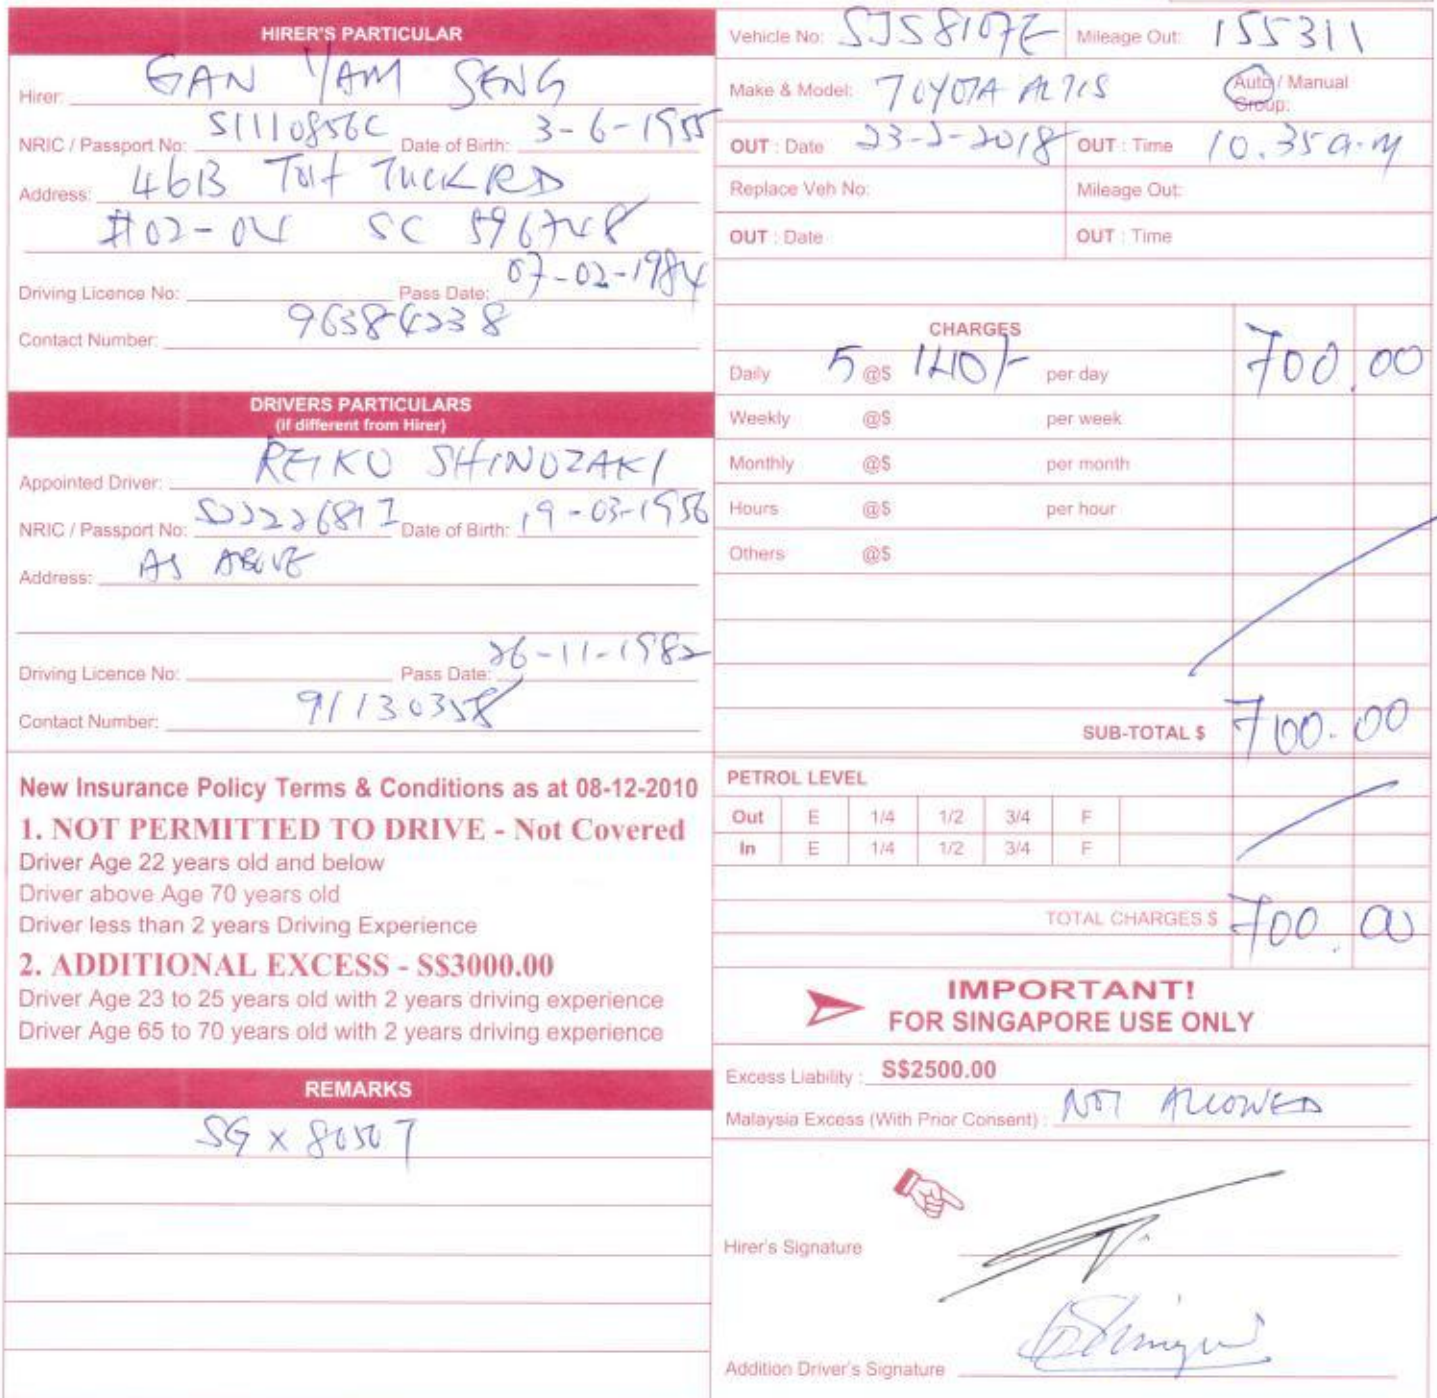 HIRER'S PARTICULAR
Hirer: GAN YAM SENG
NRIC / Passport No: S1110856C Date of Birth: 3-6-1955
Address: 46B TOH TUCK RD
#02-04 SC 596748
Driving Licence No: Pass Date: 07-02-1984
Contact Number: 96384238
DRIVERS PARTICULARS
(If different from Hirer)
Appointed Driver: REIKO SHINOZAKI
NRIC / Passport No: S2226817I Date of Birth: 19-03-1956
Address: AS ABOVE
Driving Licence No: Pass Date: 26-11-1982
Contact Number: 91130358
New Insurance Policy Terms & Conditions as at 08-12-2010
1. NOT PERMITTED TO DRIVE - Not Covered
Driver Age 22 years old and below
Driver above Age 70 years old
Driver less than 2 years Driving Experience
2. ADDITIONAL EXCESS - S$3000.00
Driver Age 23 to 25 years old with 2 years driving experience
Driver Age 65 to 70 years old with 2 years driving experience
REMARKS
SGX8050T
Vehicle No: SJS8107E Mileage Out: 155311
Make & Model: TOYOTA ALTIS Auto / Manual
Group:
OUT : Date 23-2-2018 OUT : Time 10.35 a.m
Replace Veh No: Mileage Out:
OUT : Date OUT : Time
CHARGES
Daily 5 @$ 140/- per day 700.00
Weekly @$ per week
Monthly @$ per month
Hours @$ per hour
Others @$
SUB-TOTAL $ 700.00
PETROL LEVEL
Out E 1/4 1/2 3/4 F
In E 1/4 1/2 3/4 F
TOTAL CHARGES $ 700.00
IMPORTANT!
FOR SINGAPORE USE ONLY
Excess Liability : S$2500.00
Malaysia Excess (With Prior Consent) : NOT ALLOWED
Hirer's Signature
Addition Driver's Signature